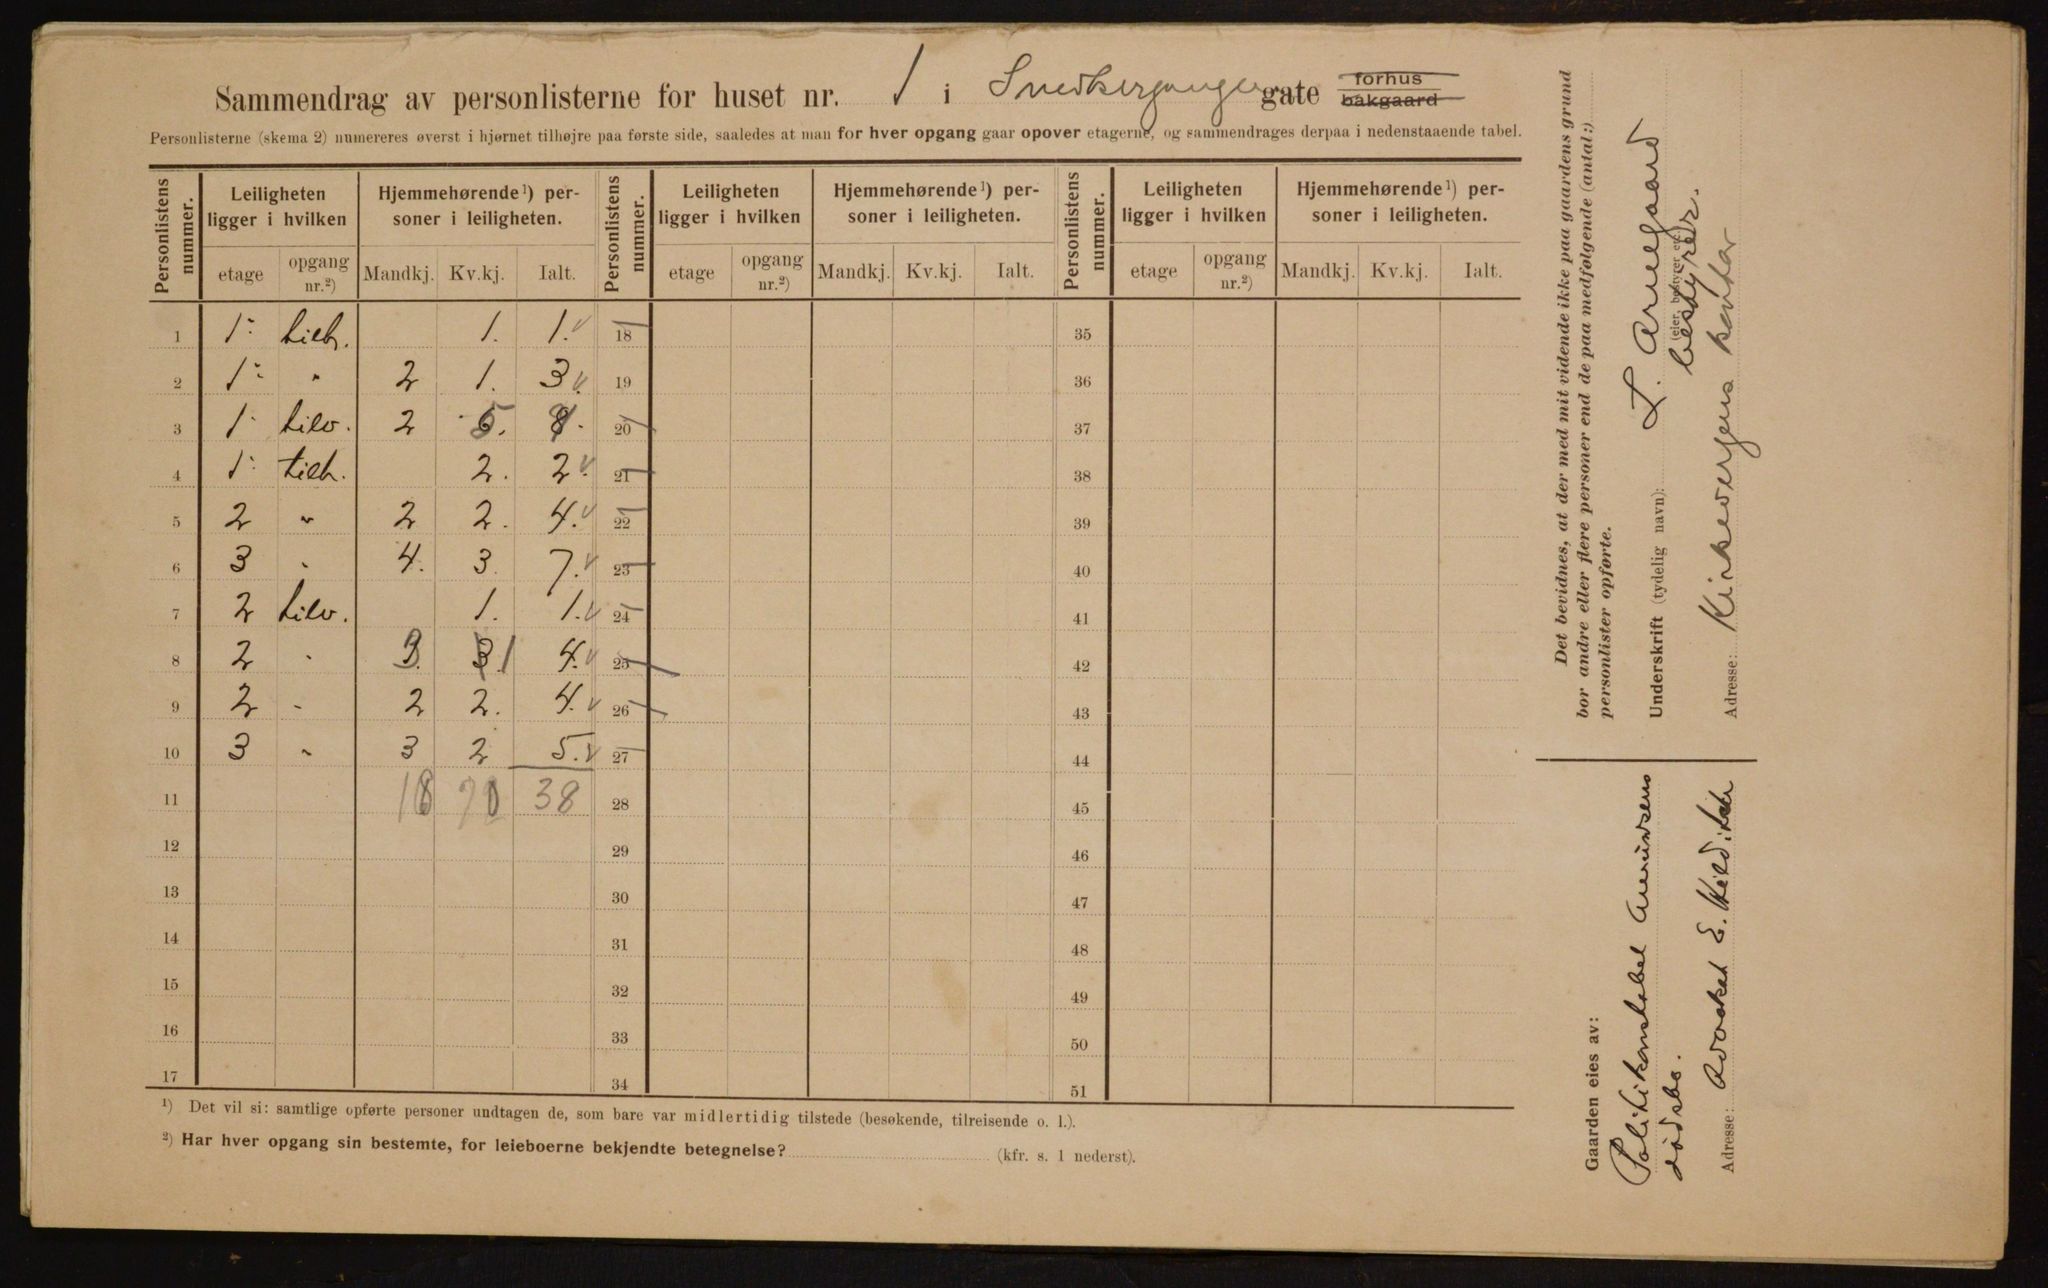 Sammendrag av personlisterne for huset nr. 1 i Snedkergangen gate forhus bakgaard
Personlisterne (skema 2) numereres øverst i hjørnet tilhøjre paa første side, saaledes at man for hver opgang gaar opover etagerne, og sammendrages derpaa i nedenstaaende tabel.
Personlistens nummer. Leiligheten ligger i hvilken Hjemmehørende ¹) personer i leiligheten. Personlistens nummer. Leiligheten ligger i hvilken Hjemmehørende ¹) personer i leiligheten. Personlistens nummer. Leiligheten ligger i hvilken Hjemmehørende ¹) personer i leiligheten.
etage opgang nr.²) Mandkj. Kv.kj. Ialt. etage opgang nr.²) Mandkj. Kv.kj. Ialt. etage opgang nr.²) Mandkj. Kv.kj. Ialt.
1 1. tilh. 1. 1. 18 35
2 1. " 2 1. 3. 19 36
3 1. tilv. 2 5. 20 37
4 1. tilh. 2. 2. 21 38
5 2 " 2 2. 4. 22 39
6 3 " 4. 3. 7. 23 40
7 2 tilv. 1. 1. 24 41
8 2 " 3. 1 4. 25 42
9 2 " 2 2. 4. 26 43
10 3 " 3 2 5. 27 44
11 38 28 45
12 29 46
13 30 47
14 31 48
15 32 49
16 33 50
17 34 51
¹) Det vil si: samtlige opførte personer undtagen de, som bare var midlertidig tilstede (besøkende, tilreisende o. l.).
²) Har hver opgang sin bestemte, for leieboerne bekjendte betegnelse? (kfr. s. 1 nederst).
Det bevidnes, at der med mit vidende ikke paa gaardens grund
bor andre eller flere personer end de paa medfølgende (antal:)
personlister opførte.
Underskrift (tydelig navn): L. Arnegaard
(eier, bestyrer etc.)
bestyrer.
Adresse: Kirkevergens kontor
Gaarden eies av:
Politikonstabel Amundsens
dødsbo.
Adresse: Advokat E.